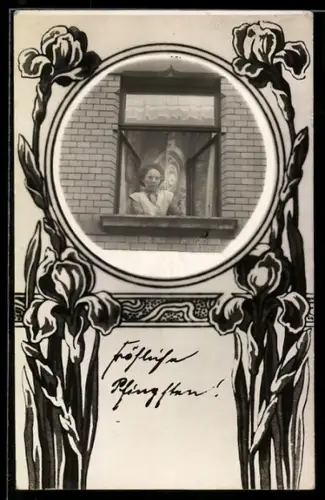 Fröhliche
Pfingsten!